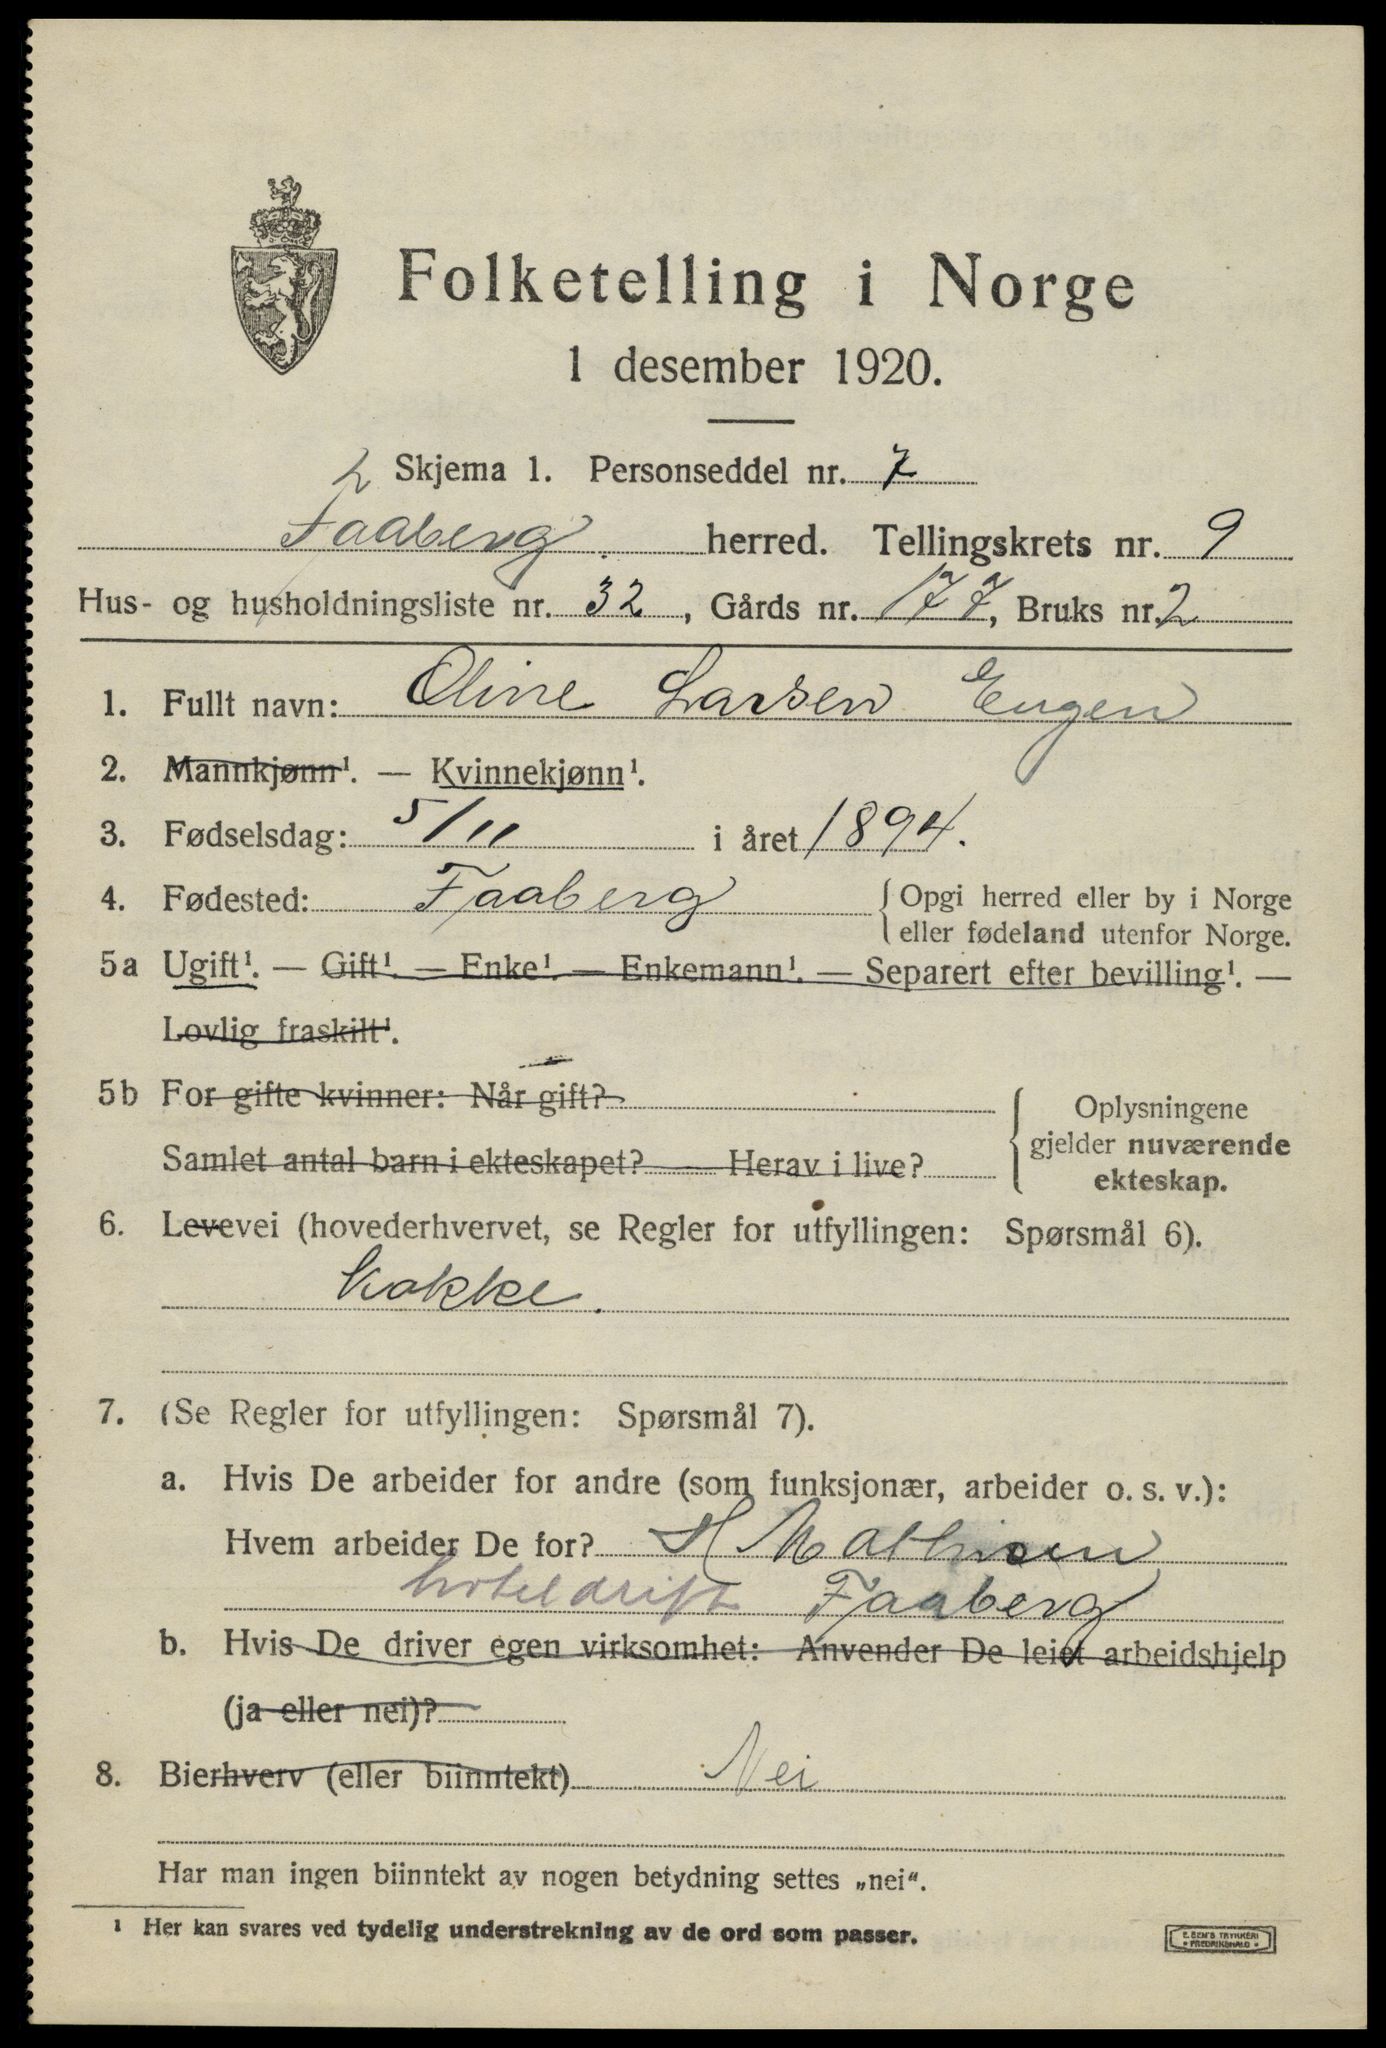 Folketelling i Norge
1 desember 1920.
2 Skjema 1. Personseddel nr. 7
Faaberg. herred. Tellingskrets nr. 9
Hus- og husholdningsliste nr. 32, Gårds nr. 177, Bruks nr. 2
1. Fullt navn: Oline Larsen Engen
2. Mannkjønn¹. — Kvinnekjønn¹.
3. Fødselsdag: 5/11 i året 1894.
4. Fødested: Faaberg { Opgi herred eller by i Norge
eller fødeland utenfor Norge.
5a Ugift¹. — Gift¹. — Enke¹. — Enkemann¹. — Separert efter bevilling¹. —
Lovlig fraskilt¹.
5b For gifte kvinner: Når gift?
Samlet antal barn i ekteskapet? Herav i live?
Oplysningene
gjelder nuværende
ekteskap.
6. Levevei (hovederhvervet, se Regler for utfyllingen: Spørsmål 6).
kokke.
7. (Se Regler for utfyllingen: Spørsmål 7).
a. Hvis De arbeider for andre (som funksjonær, arbeider o. s. v.):
Hvem arbeider De for? H Mathisen
hoteldrift Faaberg
b. Hvis De driver egen virksomhet: Anvender De leiet arbeidshjelp
(ja eller nei)?
8. Bierhverv (eller biinntekt) Nei
Har man ingen biinntekt av nogen betydning settes „nei“.
¹ Her kan svares ved tydelig understrekning av de ord som passer.
E. SEM'S TRYKKERI
FREDRIKSHALD